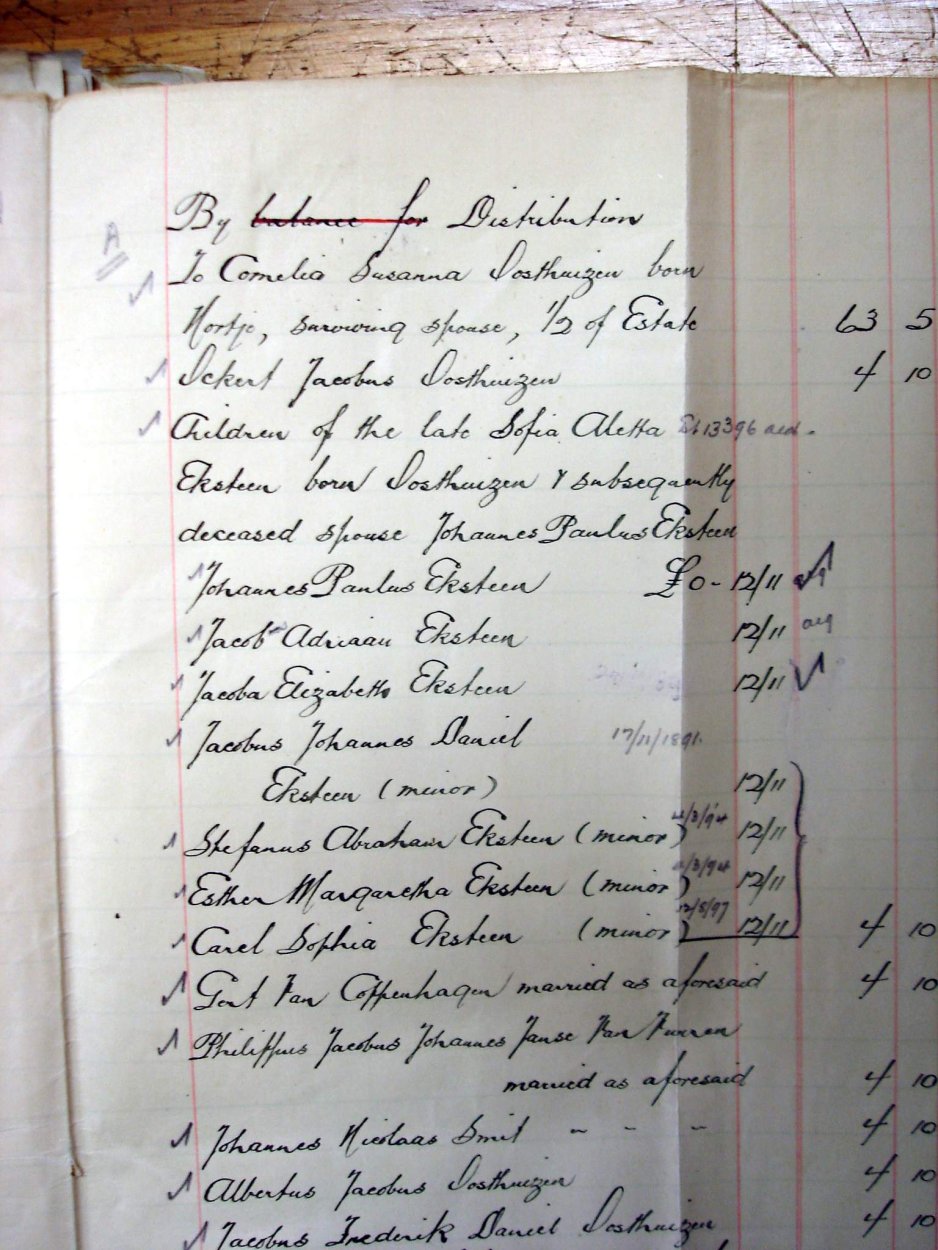 A
By balance for Distribution
To Cornelia Susanna Oosthuizen born
Nortje, surviving spouse, 1/2 of Estate 63 5
Ockert Jacobus Oosthuizen 4 10
Children of the late Sofia Aletta
Eksteen born Oosthuizen & subsequently
deceased spouse Johannes Paulus Eksteen
Johannes Paulus Eksteen £0 - 12/11
Jacob Adriaan Eksteen 12/11
Jacoba Elizabeth Eksteen 12/11
Jacobus Johannes Daniel 17/11/1891
Eksteen (minor) 12/11
Stefanus Abraham Eksteen (minor) 12/11
Esther Margaretha Eksteen (minor) 12/11
Carel Sophia Eksteen (minor) 12/11 4 10
Gert Van Coppenhagen married as aforesaid 4 10
Philippus Jacobus Johannes Janse Van Vuuren
married as aforesaid 4 10
Johannes Nicolaas Smit " " " 4 10
Albertus Jacobus Oosthuizen 4 10
Jacobus Frederik Daniel Oosthuizen 4 10